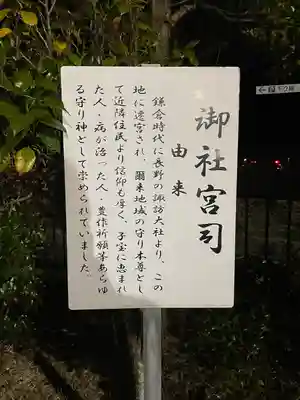 御社宮司
由来
鎌倉時代に長野の諏訪大社より、この
地に遷宮され、爾来地域の守り本尊とし
て近隣住民より信仰も厚く、子宝に恵まれ
た人・病が治った人・豊作祈願等あらゆ
る守り神として崇められていました。